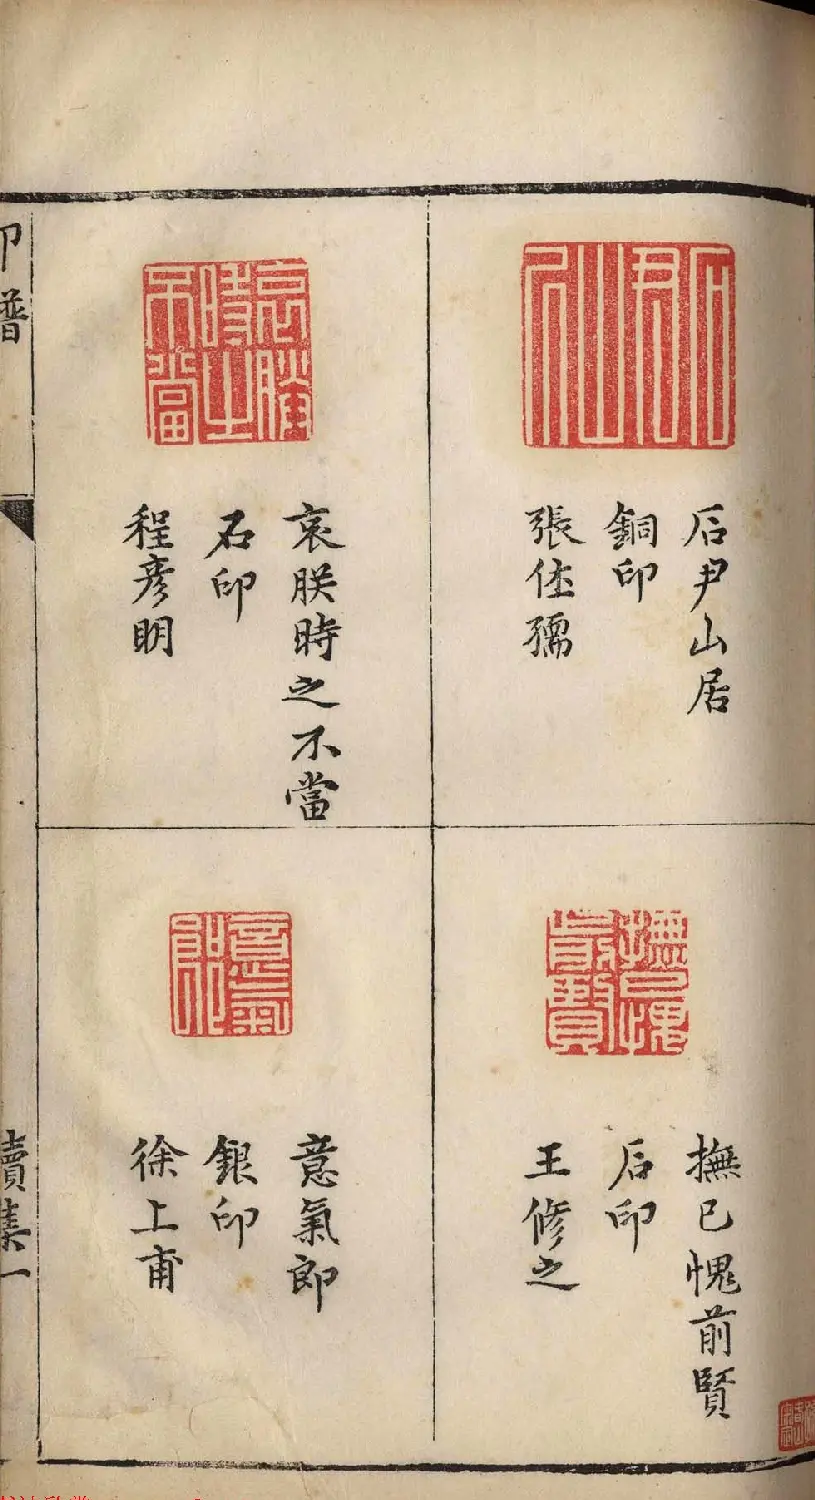 后尹山居
銅印
張仕孺
撫已愧前賢
后印
王修之
哀朕時之不當
石印
程彥明
意氣郎
銀印
徐上甫
印譜
續集一